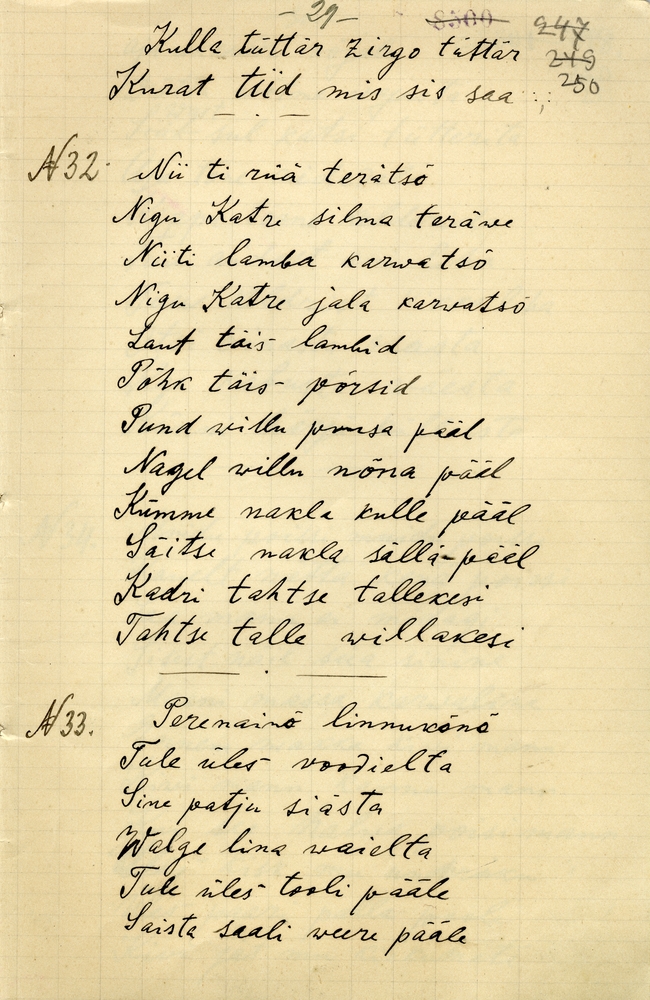 - 29 -
8500
247
249
250
Kulla tüttär zirgo tüttär
Kurat tiid mis sis saa
N 32. Nii ti rüä terätsö
Nigu Katre silma teräwe
Niiti lamba karwatsö
Nigu Katre jala karwatsö
Laut täis lambid
Põhk täis pörsid
Pund willu puusa pääl
Nagel willu nõna pääl
Kümme nakla kulle pääl
Säitse nakla sällä-pääl
Kadri tahtse tallekesi
Tahtse talle willakesi
N 33. Perenainö linnukönö
Tule üles voodielta
Sine patju siästa
Walge lina waielta
Tule üles tooli pääle
Saista saali weere pääle